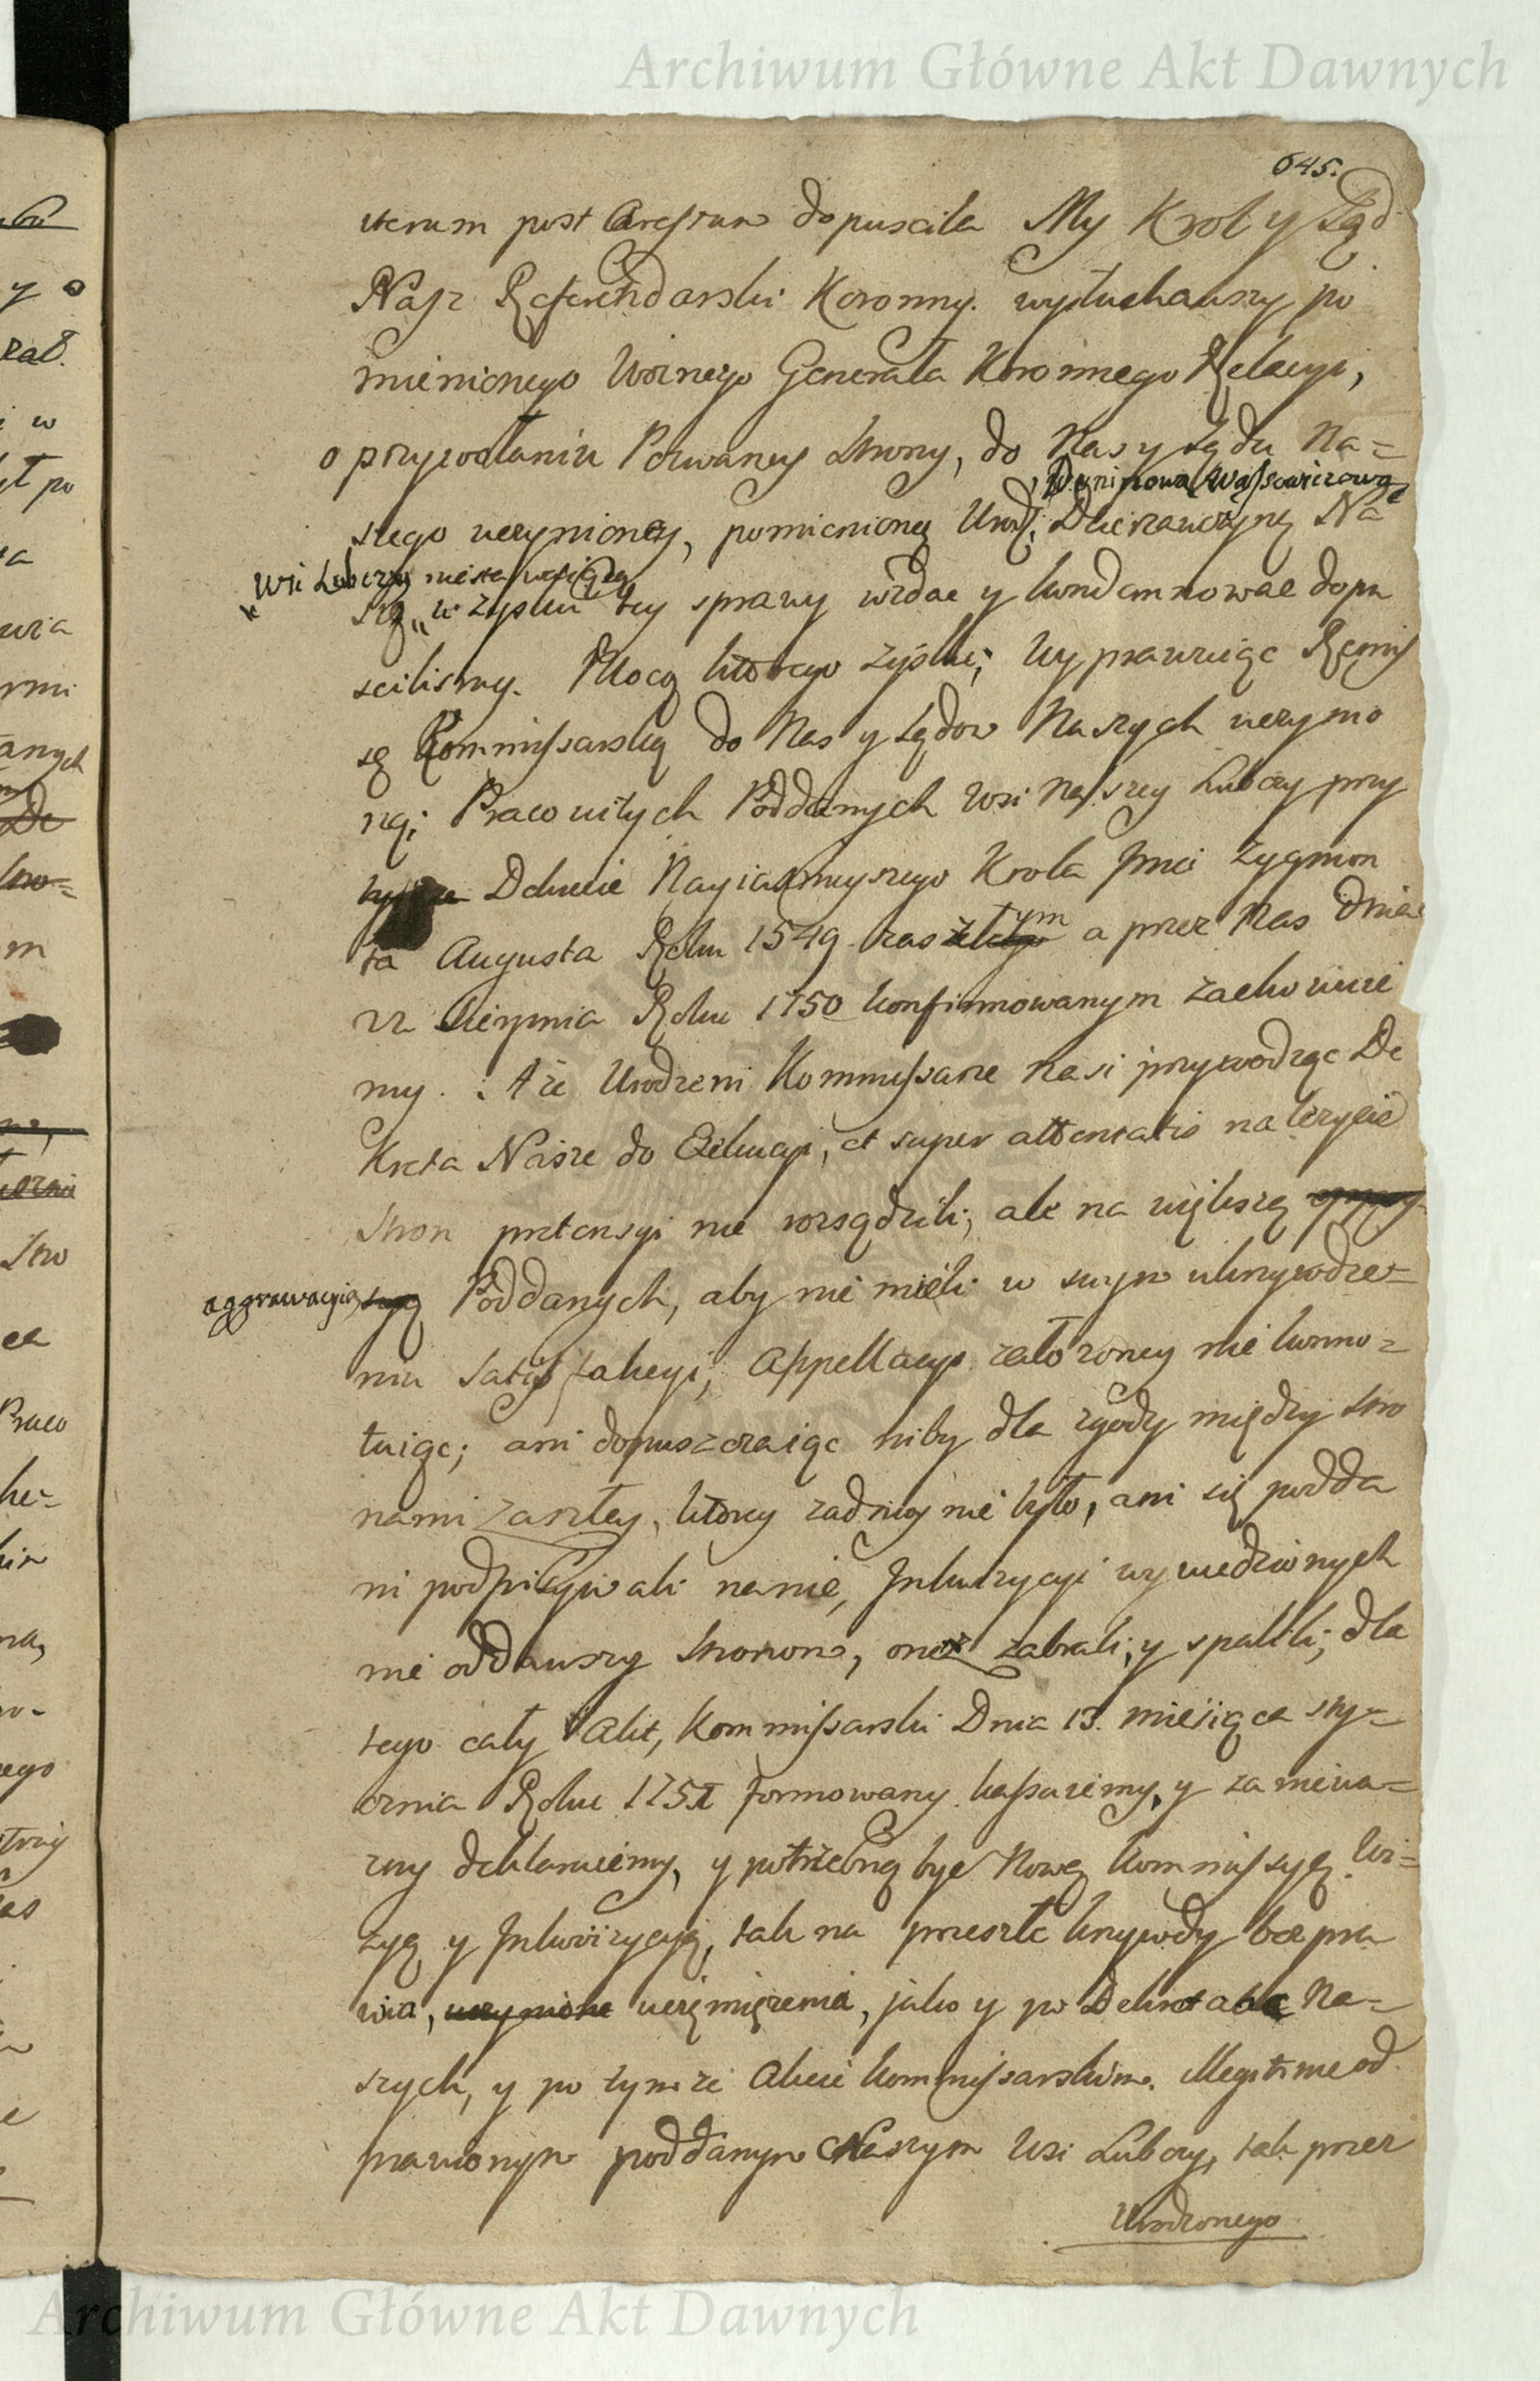 Archiwum Główne Akt Dawnych
645.
iterum post Arestum dopuscila My Krol y Sąd
Nasz Referendarski Koronny. wysłuchawszy po
mienionego Woznego Generała Koronnego Relacyi,
o przywołaniu Pozwaney Strony, do Nas y Sądu Na=
, Duninowa Wąssowiczowa
szego uczynioney, pomienioną Urodz. Dzierzawczynę Na
Wsi Lubczy niestawaiącą
szą „ w zysku tey sprawy wzdac y kondamnowac dopu
scilismy. Mocą ktorego zysku; wyprawuiąc Remis
sę Kommissarską do Nas y Sądow Naszych uczynio
ną; Pracowitych Poddanych Wsi Naszey Lubczy przy
Dekrecie Nayiasnieyszego Krola Jmci Zygmon
ta Augusta Roku 1549 zaszłym a przez Nas Dnia
22 Sierpnia Roku 1750 konfirmowanym zachowuie
my. : A że Urodzeni Kommissarze Nasi przywodząc De
kreta Nasze do Exekucyi, et super attentatis należycie
Stron pretensyi nie rozsądzili, ale na większą
aggrawacyią Poddanych, aby nie mieli w swym ukrzywdze=
niu Satisfakcyi, Appellacyi założoney nie konno=
tuiąc; ani dopuszczaiąc niby dla zgody między Stro
nami zaszłey, ktorey zadney nie było, ani się podda
ni podpisywali na nię, Inkwizycyi wywiedzionych
nie oddawszy Stronom, onez zabrali, y spalili; dla
tego cały Akt, Kommissarski Dnia 13. miesiąca Sty=
cznia Roku 1751 formowany kassuiemy, y za niewa=
zny deklaruiemy, y potrzebną byc Nową Kommissyą Wi=
zyą y Inkwizycyią, tak na przeszłe krzywdy bezpra
wia, uciemięzenia, jako y po Dekretach Na=
szych, y po tymze Akcie Kommissarskim. illegitime od
prawionym poddanym Naszym Wsi Lubczy, tak przez
Urodzonego
Archiwum Główne Akt Dawnych